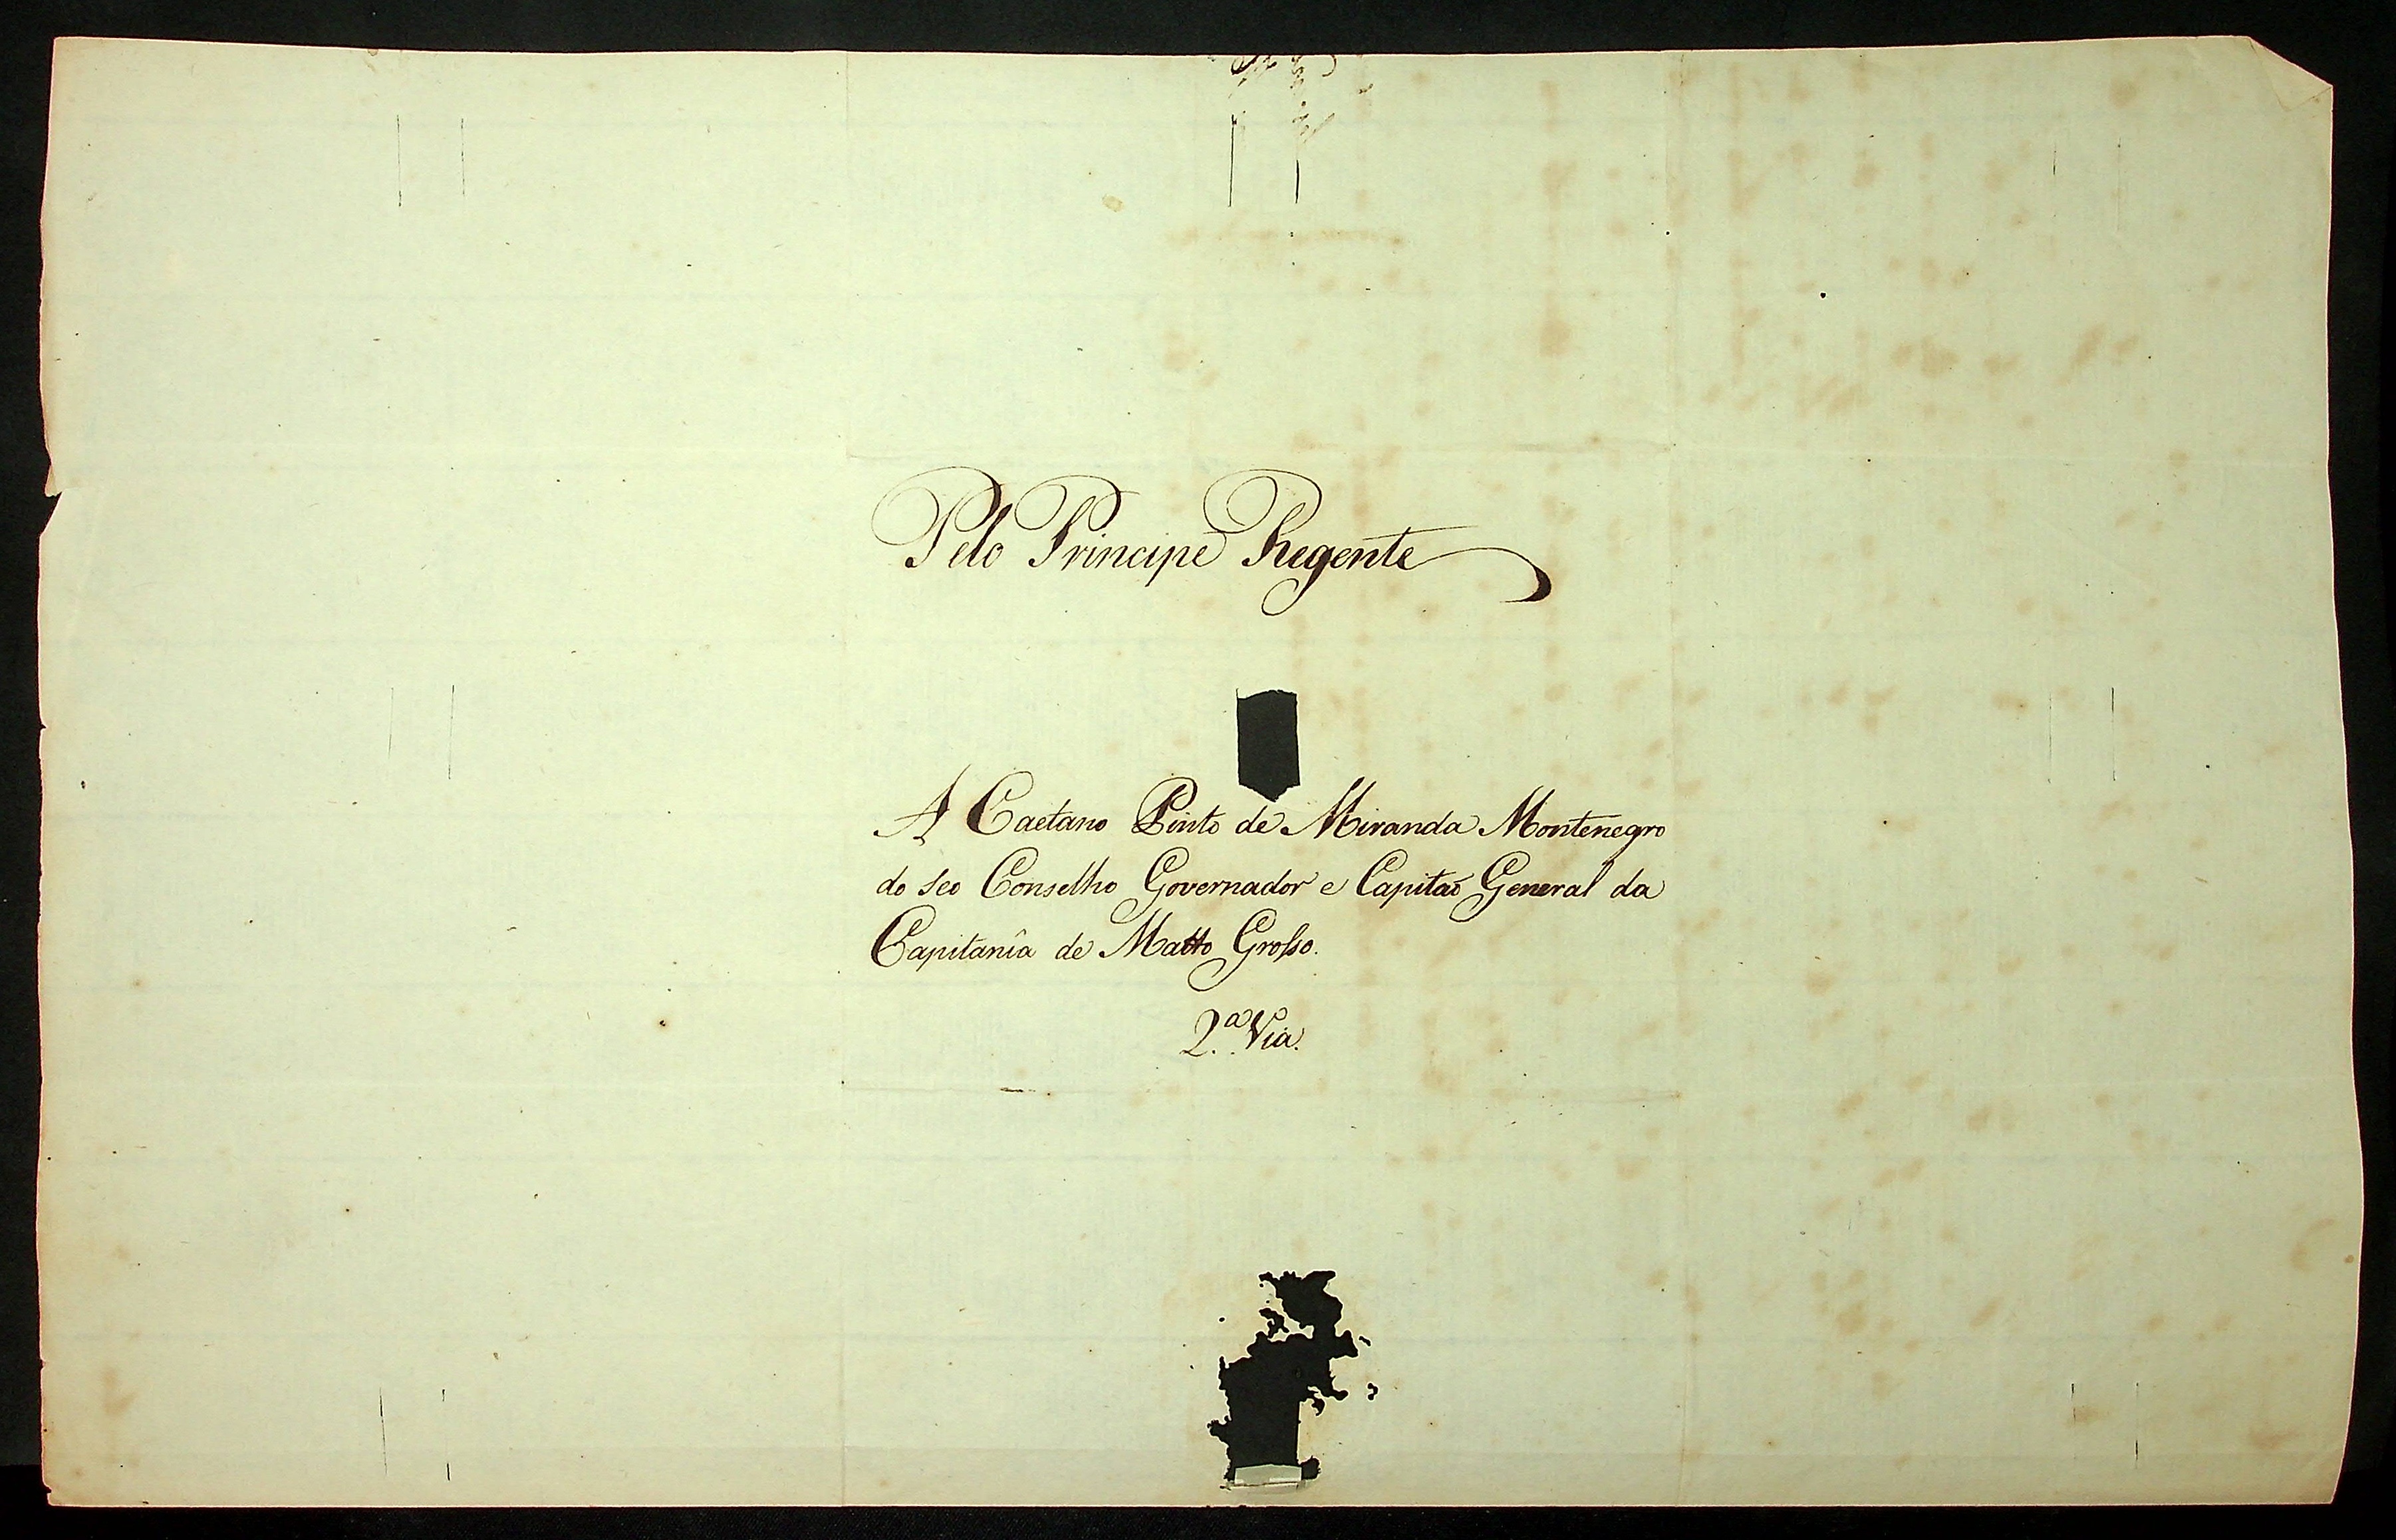 Pelo Principe Regente
A Caetano Pinto de Miranda Montenegro
do seo Conselho Governador e Capitaõ General da
Capitanîa de Matto Grosso.
2.ª Via.